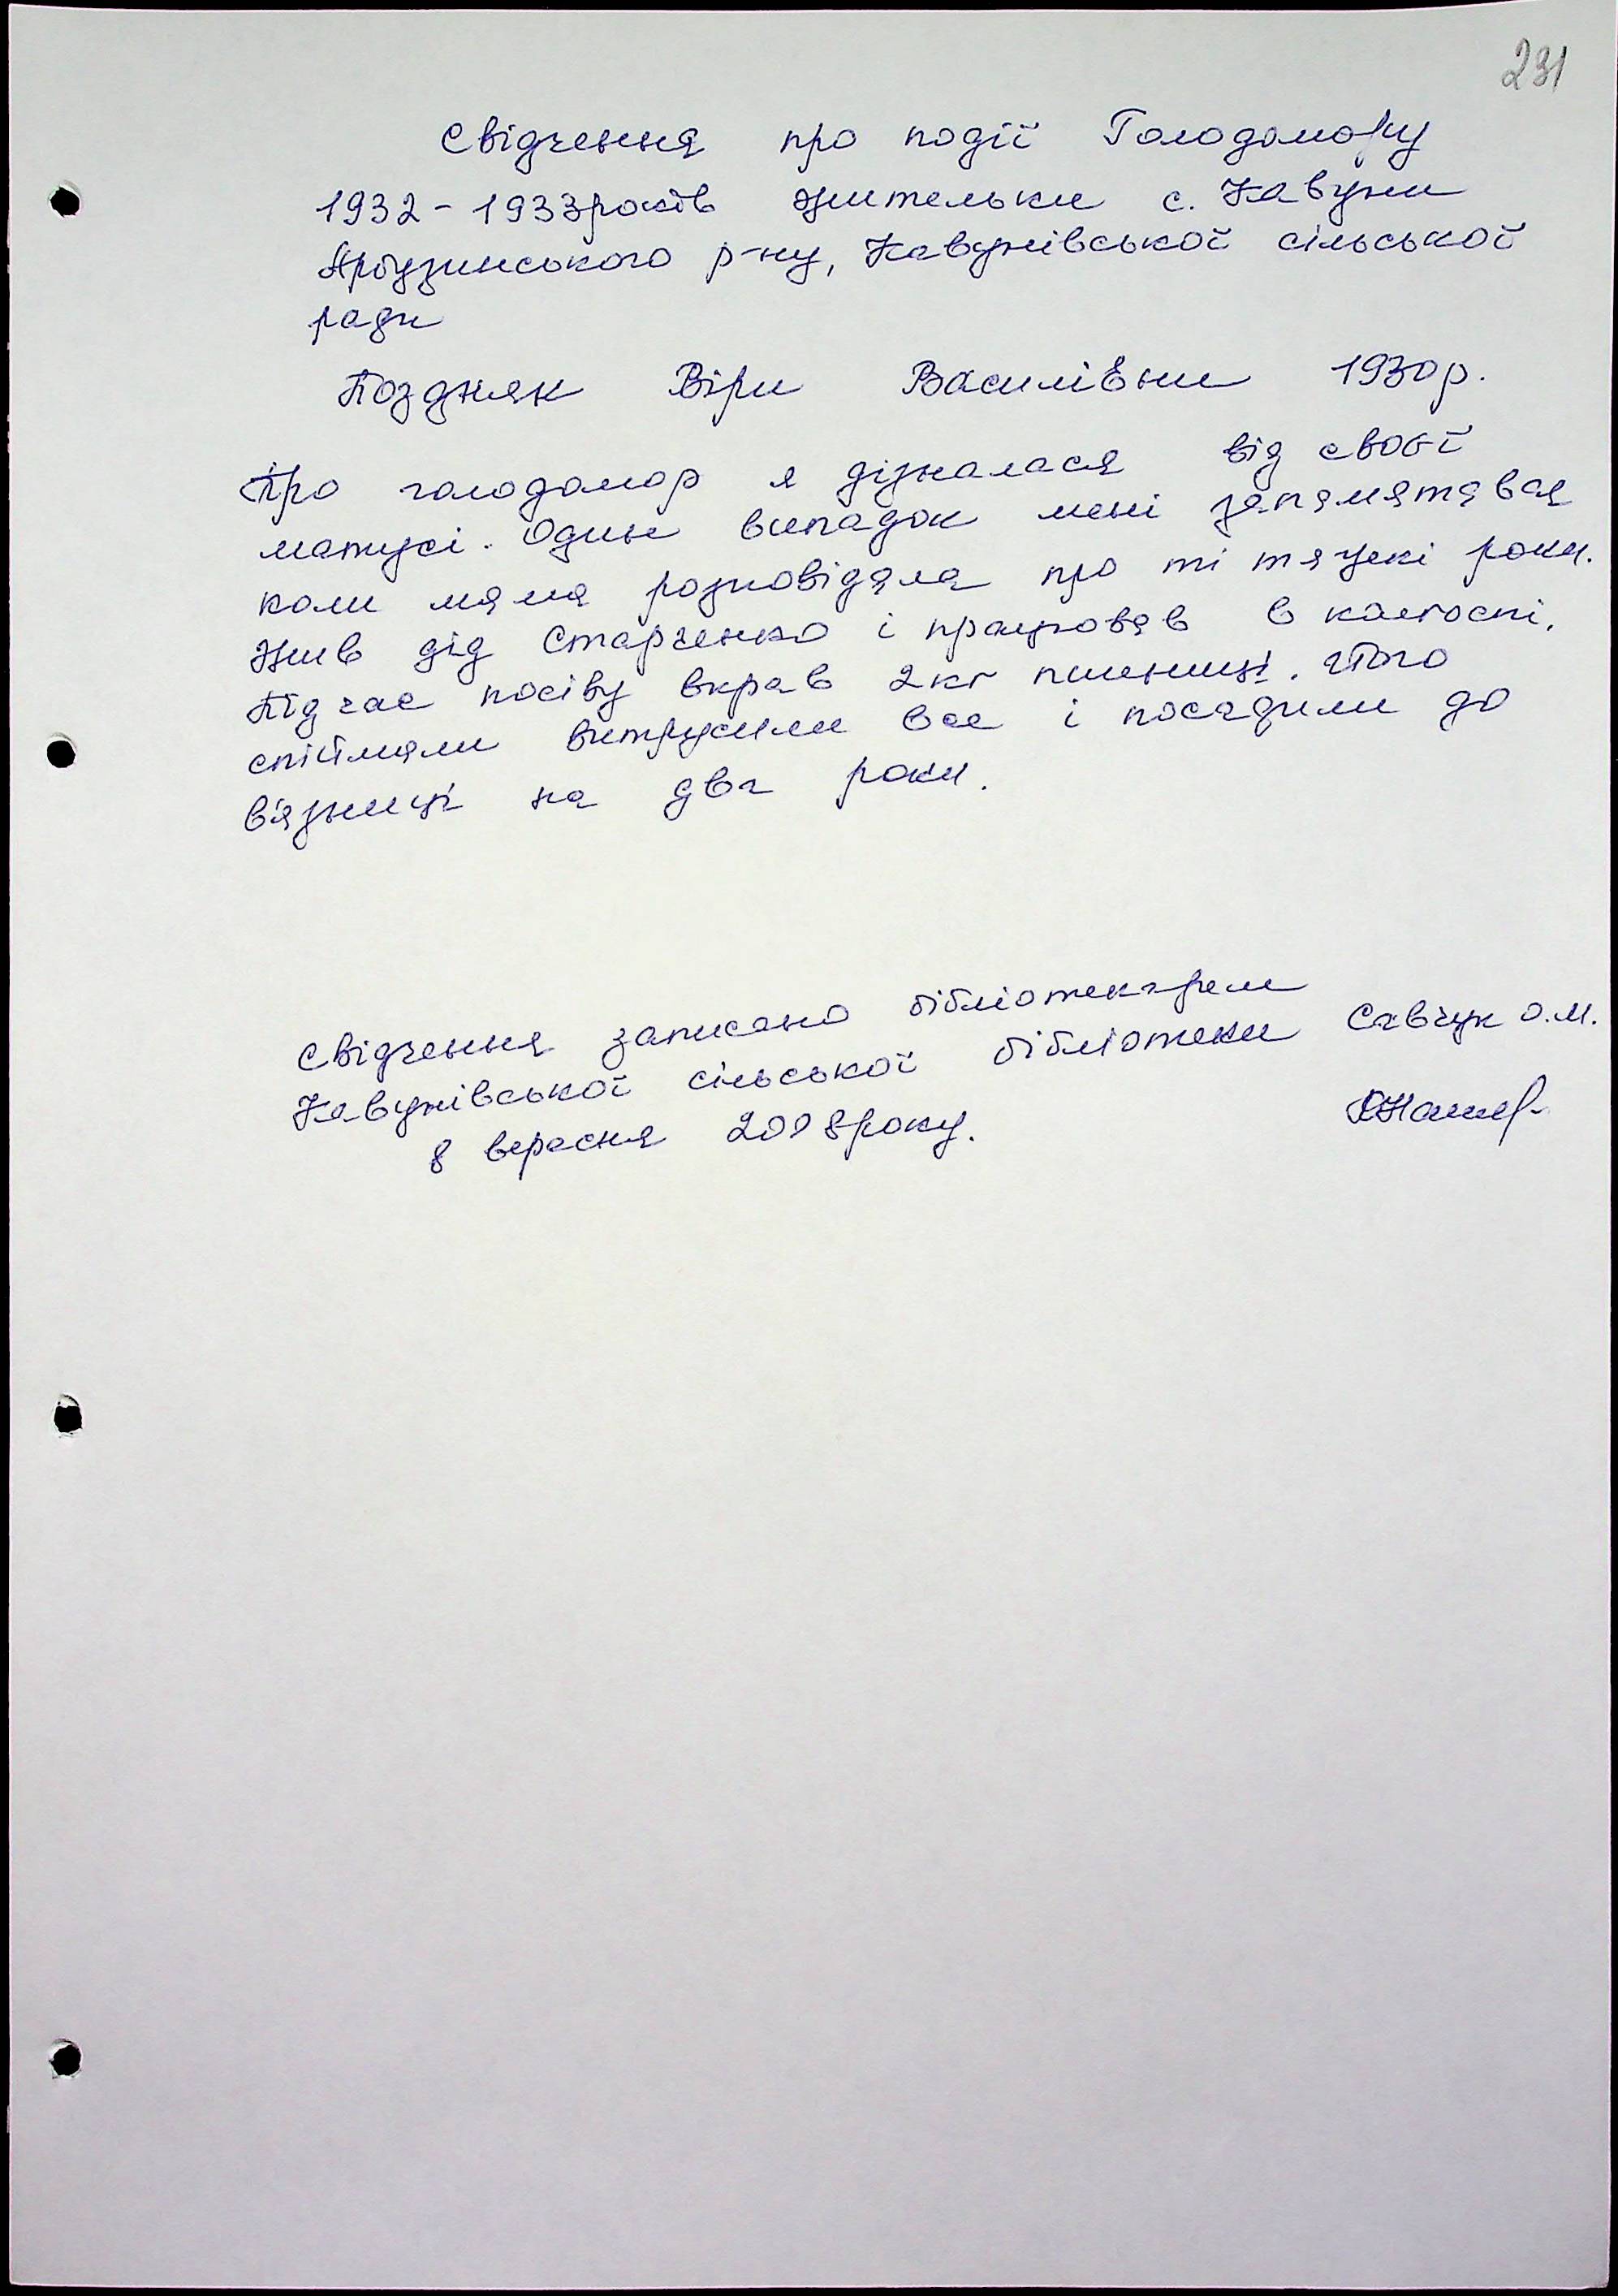 231
Свідчення про події Голодомору
1932-1933років жительки с. Кавуни
Арбузинського р-ну, Кавунівської сільської
ради
Поздняк Віри Василівни 1930р.
Про голодомор я дізналася від своєї
матусі. Один випадок мені запамятався
коли мама розповідала про ті тяжкі роки.
Жив дід Старченко і працював в колгоспі.
Під час посіву вкрав 2кг пшениці. Його
спіймали витрусили все і посадили до
в'язниці на два роки.
Свідчення записано бібліотекарем
Кавунівської сільської бібліотеки Савчук О.М.
8 вересня 2008року.